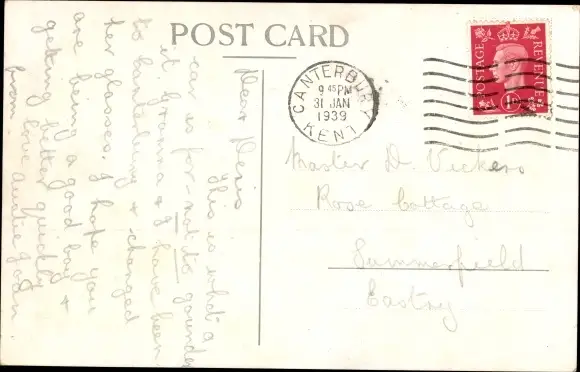 POST CARD
Dear Denis
This is what a
car is for - not to
it Granna & I have been
to Canterbury & changed
her glasses. I hope you
are being a good boy &
getting better quickly
from love auntie
CANTERBURY
9 45 PM
31 JAN
1939
KENT
POSTAGE
REVENUE
Master D. Vickers
Rose Cottage
Summerfield
Eastry